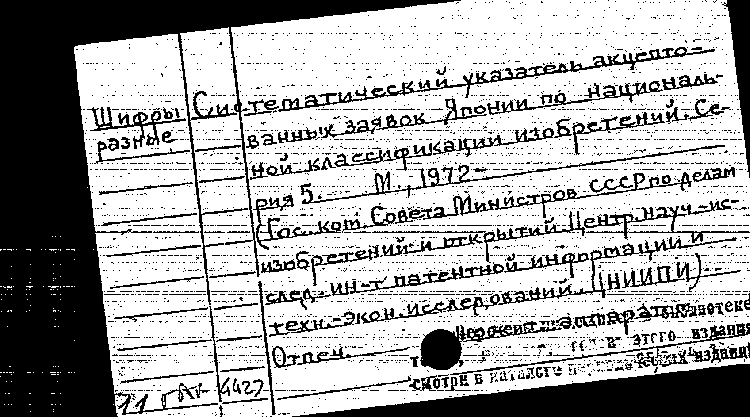 Шифры
разные
Систематический указатель акцепто-
ванных заявок Японии по националь-
ной классификации изобретений. Се-
рия 5. М., 1972-
(Гос. ком. Совета Министров СССР по делам
изобретений и открытий. Центр. науч.-ис-
след. ин-т патентной информации и
техн.-экон. исследований. (ЦНИИПИ)
Отпеч.
этого издания
смотри в каталоге изданий